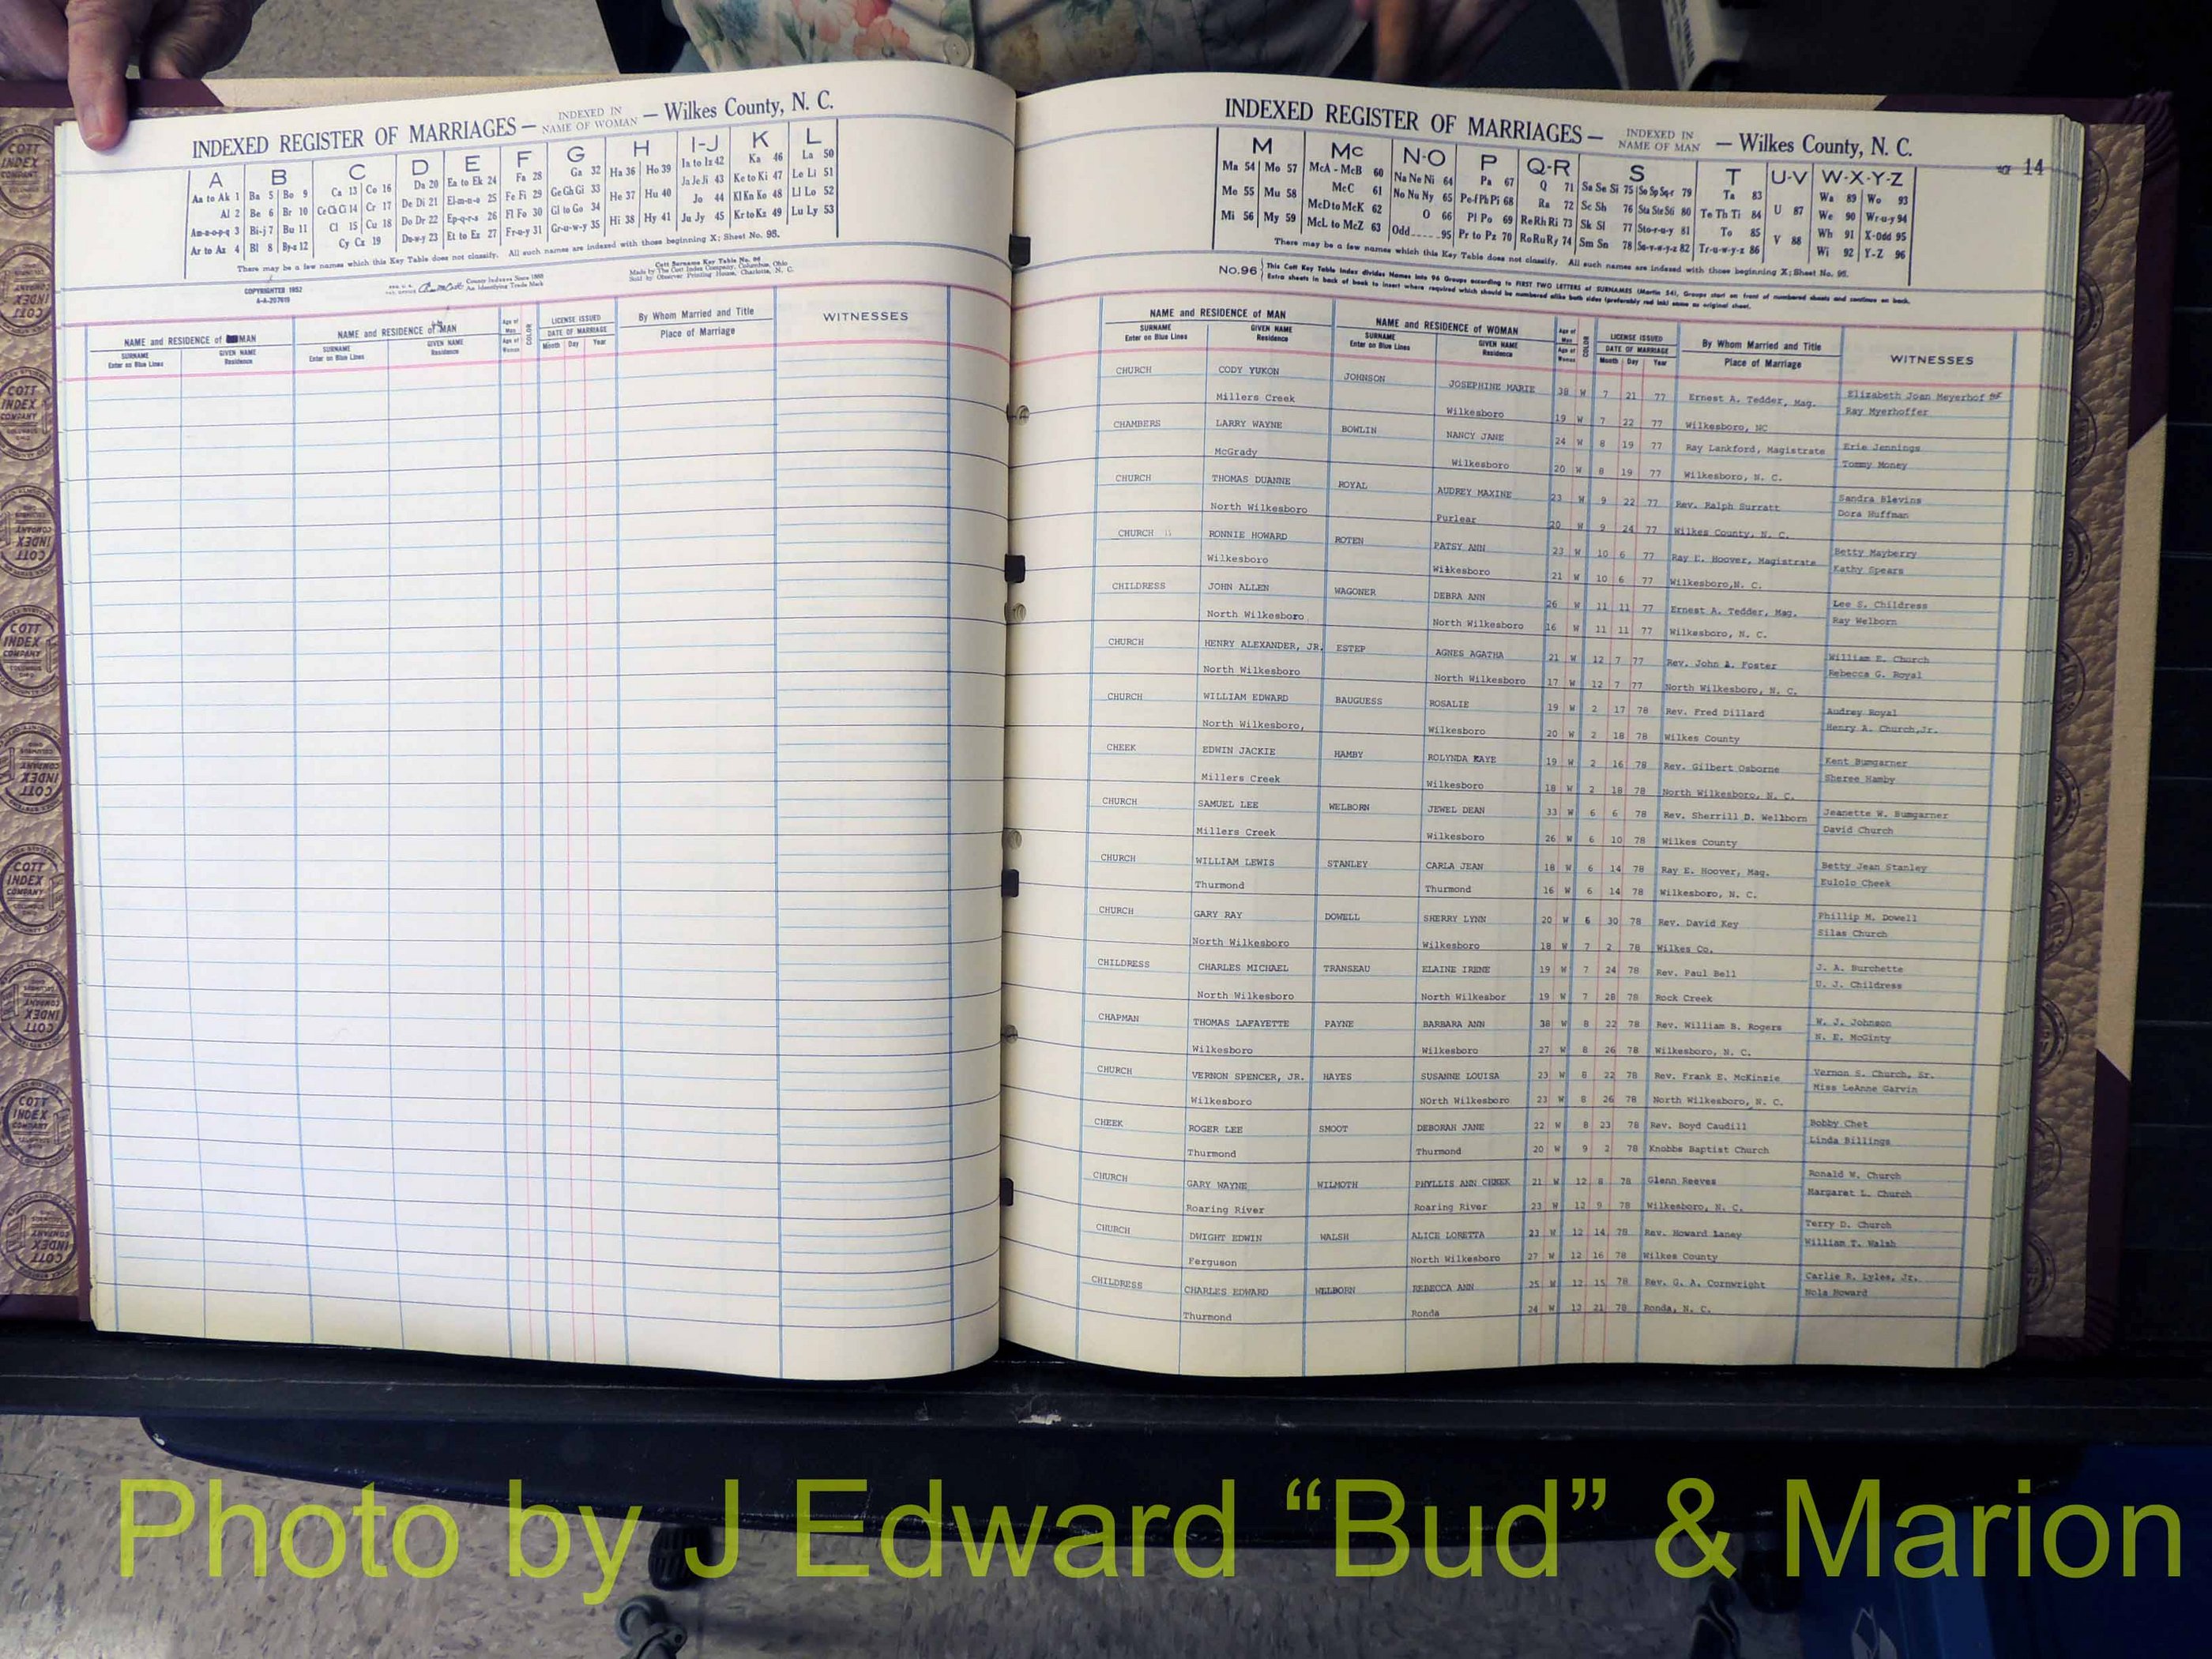 INDEXED REGISTER OF MARRIAGES — INDEXED IN NAME OF WOMAN — Wilkes County, N. C.
A B C D E F G H I-J K L
Aa to Ak 1 Ba 5 Bo 9 Ca 13 Co 16 Da 20 Ea to Ek 24 Fa 28 Ga 32 Ha 36 Ho 39 Ia to Iz 42 Ka 46 La 50
Al 2 Be 6 Br 10 Ce Ch Ci 14 Cr 17 De Di 21 El-m-n-o 25 Fe Fi 29 Ge Gh Gi 33 He 37 Hu 40 Ja Je Ji 43 Ke to Ki 47 Le Li 51
Am-n-o-p-q 3 Bi-j 7 Bu 11 Cl 15 Cu 18 Do Dr 22 Ep-q-r-s 26 Fl Fo 30 Gl to Go 34 Hi 38 Hy 41 Jo 44 Kl Kn Ko 48 Ll Lo 52
Ar to Az 4 Bl 8 By-z 12 Cy Cz 19 Du-w-y 23 Et to Ez 27 Fr-u-y 31 Gr-u-w-y 35 Ju Jy 45 Kr to Kz 49 Lu Ly 53
There may be a few names which this Key Table does not classify. All such names are indexed with those beginning X; Sheet No. 95.
COPYRIGHTED 1952
A-A-207619
County Indexes Since 1888
An Identifying Trade Mark
Cott Surname Key Table No. 96
Made by The Cott Index Company, Columbus, Ohio
Sold by Observer Printing House, Charlotte, N. C.
NAME and RESIDENCE of MAN NAME and RESIDENCE of MAN Age of Man Age of Woman COLOR LICENSE ISSUED DATE OF MARRIAGE By Whom Married and Title WITNESSES
SURNAME Enter on Blue Lines GIVEN NAME Residence SURNAME Enter on Blue Lines GIVEN NAME Residence Month Day Year Place of Marriage
INDEXED REGISTER OF MARRIAGES — INDEXED IN NAME OF MAN — Wilkes County, N. C.
14
M Mc N-O P Q-R S T U-V W-X-Y-Z
Ma 54 Mo 57 McA - McB 60 Na Ne Ni 64 Pa 67 Q 71 Sa Se Si 75 So Sp Sq-r 79 Ta 83 U 87 Wa 89 Wo 93
Me 55 Mu 58 McC 61 No Nu Ny 65 Pe-f Ph Pi 68 Ra 72 Sc Sh 76 Sta Ste Sti 80 Te Th Ti 84 V 88 We 90 Wr-u-y 94
Mi 56 My 59 McD to McK 62 O 66 Pl Po 69 Re Rh Ri 73 Sk Sl 77 Sto-r-u-y 81 To 85 Wh 91 X-Odd 95
McL to McZ 63 Odd 95 Pr to Pz 70 Ro Ru Ry 74 Sm Sn 78 Su-v-w-y-z 82 Tr-u-w-y-z 86 Wi 92 Y-Z 96
There may be a few names which this Key Table does not classify. All such names are indexed with those beginning X; Sheet No. 95.
No. 96 This Cott Key Table Index divides Names into 96 Groups according to FIRST TWO LETTERS of SURNAMES (Martin 54). Groups start on front of numbered sheets and continue on back.
Extra sheets in back of book to insert where required which should be numbered alike both sides (preferably red ink) same as original sheet.
NAME and RESIDENCE of MAN NAME and RESIDENCE of WOMAN Age of Man Age of Woman COLOR LICENSE ISSUED DATE OF MARRIAGE By Whom Married and Title WITNESSES
SURNAME Enter on Blue Lines GIVEN NAME Residence SURNAME Enter on Blue Lines GIVEN NAME Residence Month Day Year Place of Marriage
CHURCH CODY YUKON JOHNSON JOSEPHINE MARIE 38 W 7 21 77 Ernest A. Tedder, Mag. Elizabeth Joan Meyerhof
Millers Creek Wilkesboro 19 W 7 22 77 Wilkesboro, NC Ray Myerhoffer
CHAMBERS LARRY WAYNE BOWLIN NANCY JANE 24 W 8 19 77 Ray Lankford, Magistrate Erie Jennings
McGrady Wilkesboro 20 W 8 19 77 Wilkesboro, N. C. Tommy Money
CHURCH THOMAS DUANNE ROYAL AUDREY MAXINE 23 W 9 22 77 Rev. Ralph Surratt Sandra Blevins
North Wilkesboro Purlear 20 W 9 24 77 Wilkes County, N. C. Dora Huffman
CHURCH RONNIE HOWARD ROTEN PATSY ANN 23 W 10 6 77 Ray E. Hoover, Magistrate Betty Mayberry
Wilkesboro Wilkesboro 21 W 10 6 77 Wilkesboro,N. C. Kathy Spears
CHILDRESS JOHN ALLEN WAGONER DEBRA ANN 26 W 11 11 77 Ernest A. Tedder, Mag. Lee S. Childress
North Wilkesboro North Wilkesboro 16 W 11 11 77 Wilkesboro, N. C. Ray Welborn
CHURCH HENRY ALEXANDER, JR. ESTEP AGNES AGATHA 21 W 12 7 77 Rev. John A. Foster William E. Church
North Wilkesboro North Wilkesboro 17 W 12 7 77 North Wilkesboro, N. C. Rebecca G. Royal
CHURCH WILLIAM EDWARD BAUGUESS ROSALIE 19 W 2 17 78 Rev. Fred Dillard Audrey Royal
North Wilkesboro, Wilkesboro 20 W 2 18 78 Wilkes County Henry A. Church,Jr.
CHEEK EDWIN JACKIE HAMBY ROLYNDA KAYE 19 W 2 16 78 Rev. Gilbert Osborne Kent Bumgarner
Millers Creek Wilkesboro 18 W 2 18 78 North Wilkesboro, N. C. Sheree Hamby
CHURCH SAMUEL LEE WELBORN JEWEL DEAN 33 W 6 6 78 Rev. Sherrill D. Wellborn Jeanette W. Bumgarner
Millers Creek Wilkesboro 26 W 6 10 78 Wilkes County David Church
CHURCH WILLIAM LEWIS STANLEY CARLA JEAN 18 W 6 14 78 Ray E. Hoover, Mag. Betty Jean Stanley
Thurmond Thurmond 16 W 6 14 78 Wilkesboro, N. C. Eulolo Cheek
CHURCH GARY RAY DOWELL SHERRY LYNN 20 W 6 30 78 Rev. David Key Phillip M. Dowell
North Wilkesboro Wilkesboro 18 W 7 2 78 Wilkes Co. Silas Church
CHILDRESS CHARLES MICHAEL TRANSEAU ELAINE IRENE 19 W 7 24 78 Rev. Paul Bell J. A. Burchette
North Wilkesboro North Wilkesbor 19 W 7 28 78 Rock Creek U. J. Childress
CHAPMAN THOMAS LAFAYETTE PAYNE BARBARA ANN 38 W 8 22 78 Rev. William B. Rogers W. J. Johnson
Wilkesboro Wilkesboro 27 W 8 26 78 Wilkesboro, N. C. N. E. McGinty
CHURCH VERNON SPENCER, JR. HAYES SUSANNE LOUISA 23 W 8 22 78 Rev. Frank E. McKinzie Vernon S. Church, Sr.
Wilkesboro NOrth Wilkesboro 23 W 8 26 78 North Wilkesboro, N. C. Miss LeAnne Garvin
CHEEK ROGER LEE SMOOT DEBORAH JANE 22 W 8 23 78 Rev. Boyd Caudill Bobby Chet
Thurmond Thurmond 20 W 9 2 78 Knobbs Baptist Church Linda Billings
CHURCH GARY WAYNE WILMOTH PHYLLIS ANN CHEEK 21 W 12 8 78 Glenn Reeves Ronald W. Church
Roaring River Roaring River 23 W 12 9 78 Wilkesboro, N. C. Margaret L. Church
CHURCH DWIGHT EDWIN WALSH ALICE LORETTA 23 W 12 14 78 Rev. Howard Laney Terry D. Church
Ferguson North Wilkesboro 27 W 12 16 78 Wilkes County William T. Walsh
CHILDRESS CHARLES EDWARD WELBORN REBECCA ANN 25 W 12 15 78 Rev. G. A. Cornwright Carlie R. Lyles, Jr.
Thurmond Ronda 24 W 12 21 78 Ronda, N. C. Nola Howard
COTT INDEX COMPANY
Photo by J Edward “Bud” & Marion